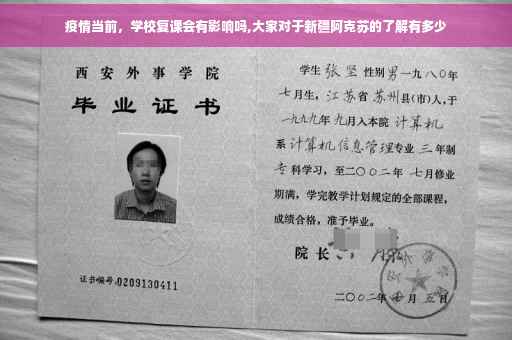 疫情当前，学校复课会有影响吗,大家对于新疆阿克苏的了解有多少
西安外事学院
毕业证书
证书编号:0209130411
学生 张坚 性别 男 一九八〇年
七月生，江苏省 苏州县(市)人，于
一九九九年 九月入本院 计算机
系 计算机信息管理专业 三 年制
专科学习，至二〇〇二年 七月修业
期满，学完教学计划规定的全部课程，
成绩合格，准予毕业。
院长
二〇〇二年 七 月 五 日